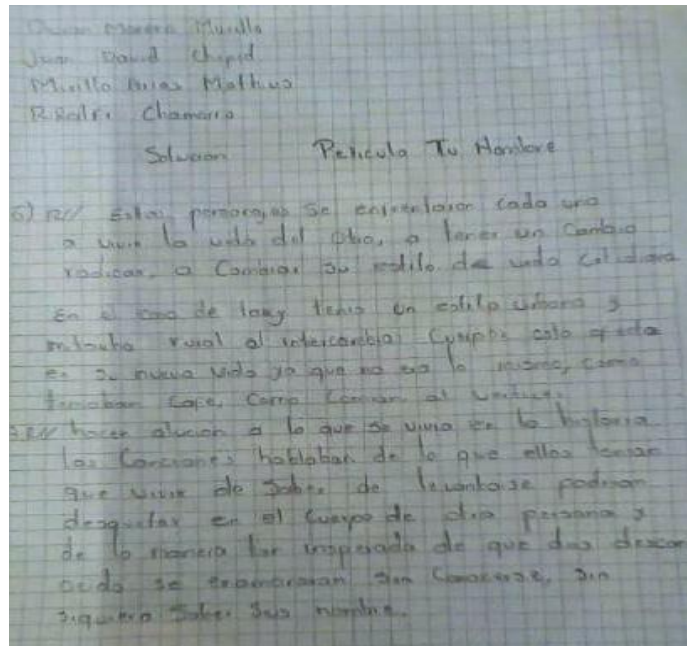 Moreno Murillo
Juan David Chapid
Murillo Arias Matheus
Chamorro
Solucion Pelicula Tu Nombre
6) R// Estos personajes se enfrentaron cada uno
a vivir la vida del otro, a tener un cambio
radical, a cambiar su estilo de vida cotidiana
En el caso de taky tenia un estilo urbano y
mitsuha rural al intercambiar cuerpos esto afecta
en su nueva vida ya que no era lo mismo, como
tomaban cafe, como comian al
R// hacen alucion a lo que se vivia en la historia
las canciones hablaban de lo que ellos tenian
que vivir de saber de levantarse podrian
despertar en el cuerpo de otra persona y
de la manera tan inesperada de que dos
se enamoraran sin conocerse, sin
siquiera saber sus nombre.